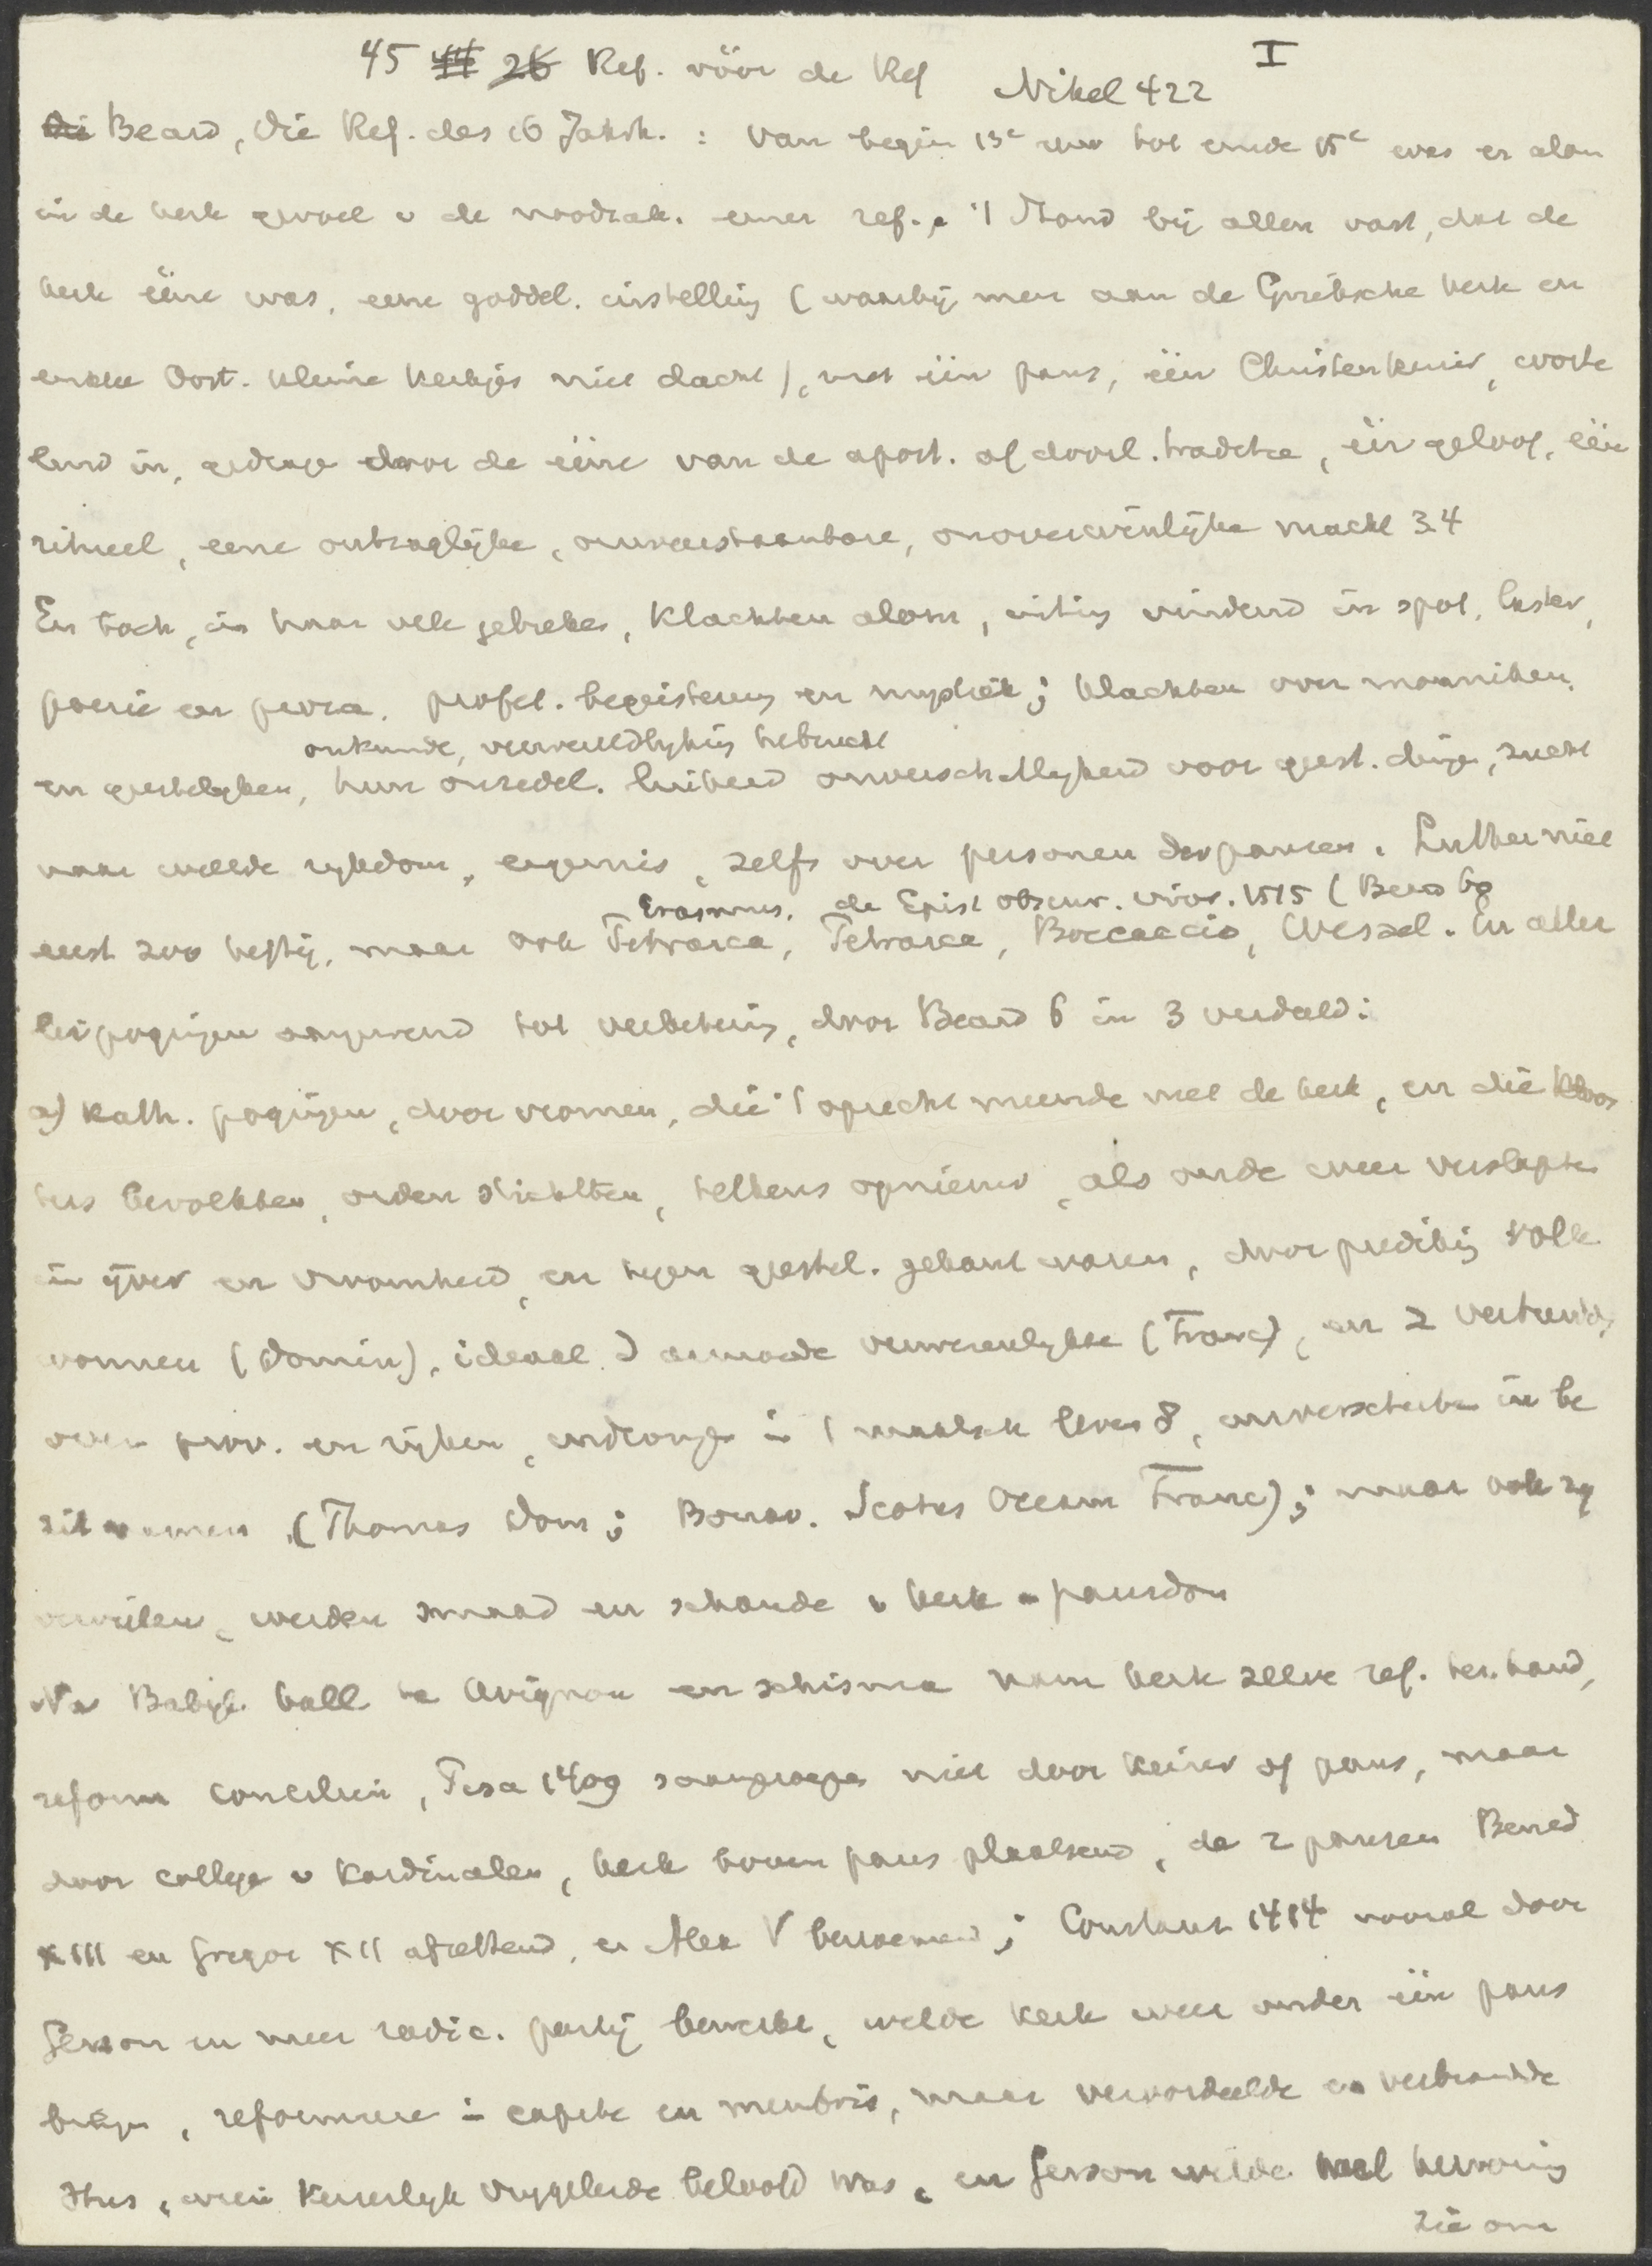 45 44 26 Ref. vóór de Ref Nikel 422 I
Die Beard, Die Ref. des 16 Jahrh. : van begin 13e eeuw tot einde 15e was er alom
in de kerk gevoel v de noodzak. eener ref., 't stond bij allen vast, dat de
kerk ééne was, eene goddel. instelling (waarbij men aan de Grieksche kerk en
enkele Oost. kleine kerkjes niet dacht), met één paus, één Christenkeizer, worte
lend in, gedragen door de ééne van de apost. af doorl. traditie, één geloof, één
ritueel, eene ontzaglijke, onweerstaanbare, onoverwinlijke macht 3.4
En toch, in haar vele gebreken, klachten alom, uiting vindend in spot, laster,
poezie en proza, profet. begeistering en mystiek; klachten over monniken
onkunde, verwereldlyking hebzucht
en geestelyken, hun onzedel. luiheid onverschillykheid voor geest. dingen, zucht
naar weelde rykdom, ergernis, zelfs over personen der pausen. Luther niet
Erasmus, de Epist obscur. viror. 1515 (Beard 60
eerst zoo heftig, maar ook Petrarca, Boccaccio, Wessel. En aller
lei pogingen aanwend tot verbetering, door Beard 6 in 3 verdeeld:
a) kath. pogingen, door vromen, die 't oprecht meende met de kerk, en die kloos
ters bevolkten, orden stichtten, telkens opnieuw, als oude weer verslapten
in yver en vroomheid, en tegen geestel. gekant waren, door prediking volk
wonnen (Domin), ideaal v armoede verwezenlykte (Franc), en 2 vertakt
over prov. en ryken, indrongen in 't maatsch leven 8, universiteiten in be
zit namen (Thomas Dom; Bonav. Scotus Occam Franc); maar ook zy
vervielen, werden smaad en schande v kerk en pausdom
Na Babyl. ball te Avignon en schisma nam kerk zelve ref. ter hand,
reform concilien, Pisa 1409 saamgeroepen niet door keizer of paus, maar
door college v kardinalen, kerk boven paus plaatsend, de 2 pausen Bened
XIII en Gregor XII afzettend, en Alex V benoemend; Constanz 1414 vooral door
Gerson en meer radic. party bewerkt, wilde kerk weer onder één paus
brengen, reformeren in capite en membris, maar veroordeelde en verbrandde
Hus, wien keizerlyk vrygeleide beloofd was, en Gerson wilde wel hervorming
zie om